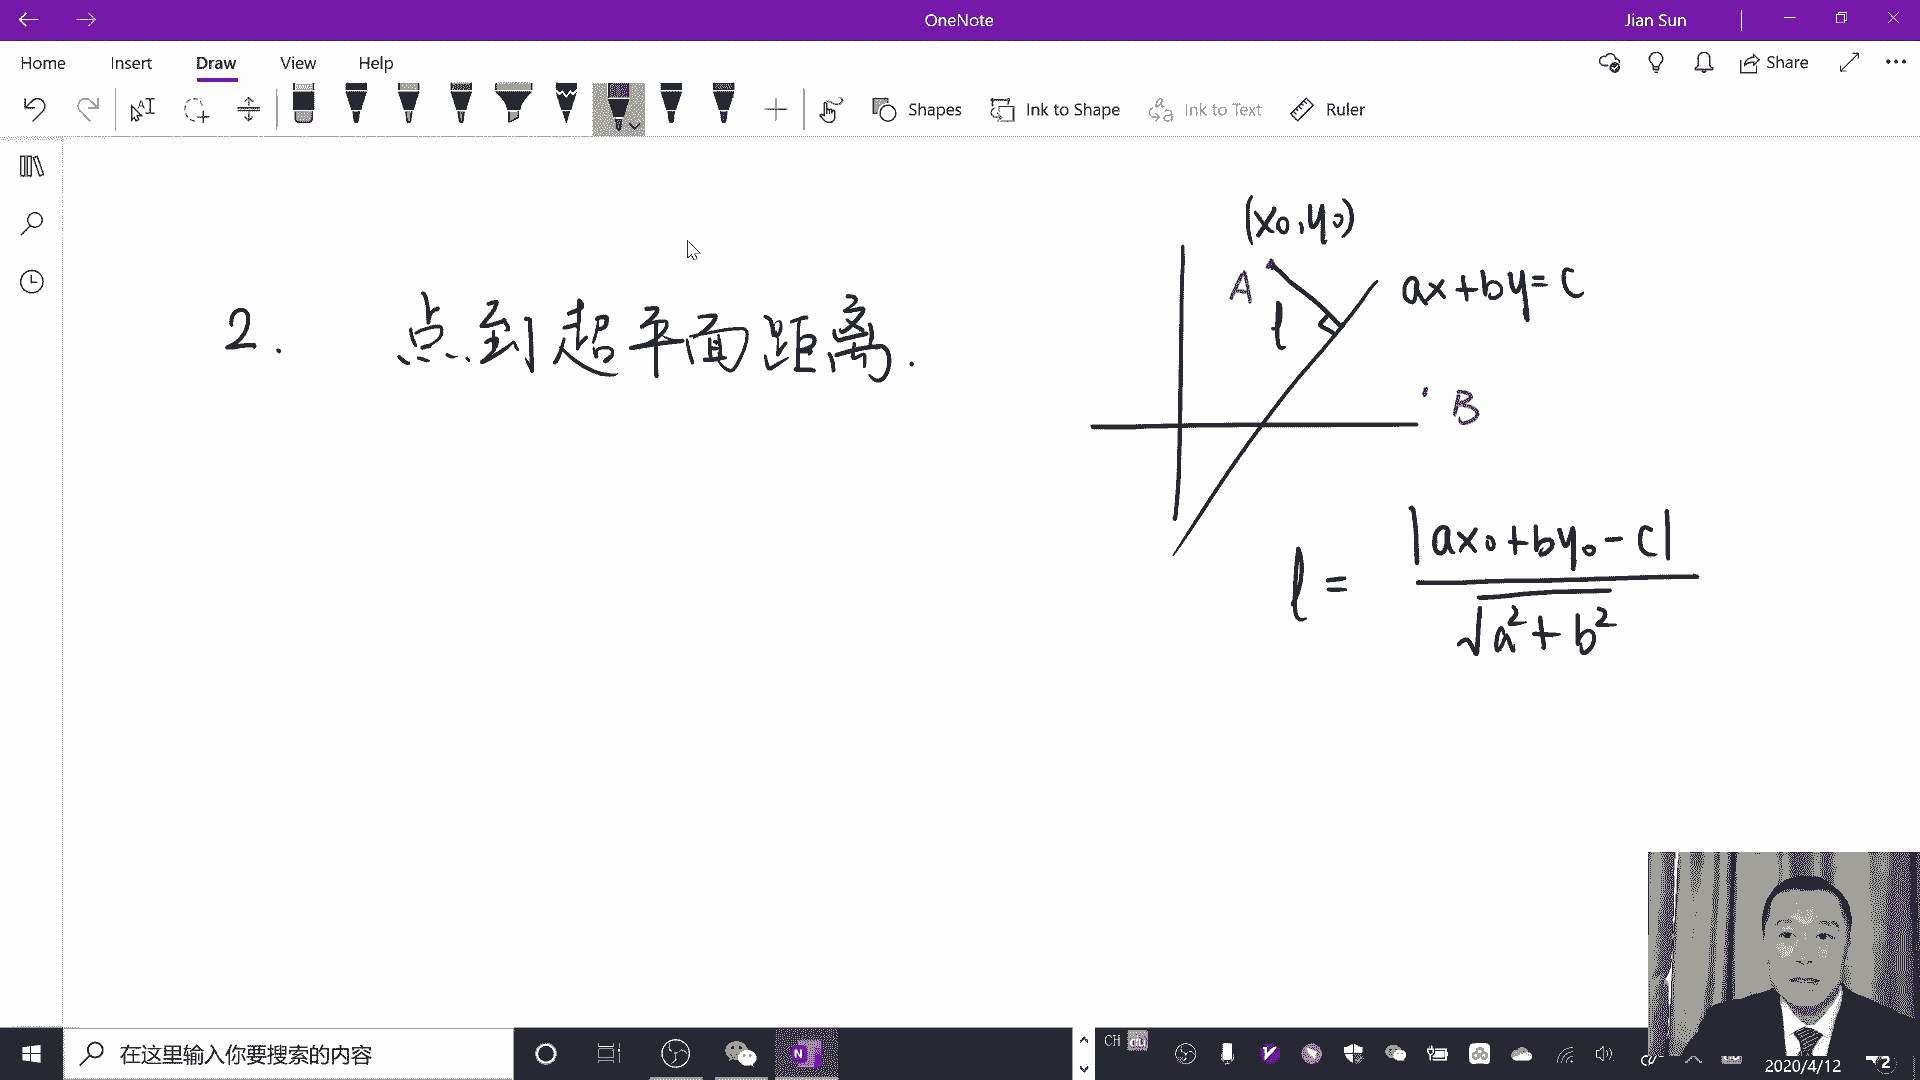 OneNote
Jian Sun
Home Insert Draw View Help
Share
Shapes Ink to Shape Ink to Text Ruler
2. 点到超平面距离.
(x₀,y₀)
A
l
ax+by=c
B
l = |ax₀+by₀-c| / √a²+b²
在这里输入你要搜索的内容
N
CH du
2020/4/12
2